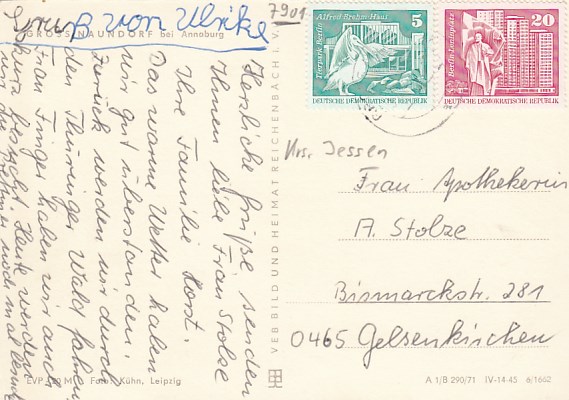 Gruß von Ulrike
7901
GROSS NAUNDORF bei Annaburg
Herzliche Grüße senden
Ihnen liebe Frau Stolze
Ihre Familie Horst.
Das warme Wetter haben
wir gut überstanden.
Zurück werden wir durch
den Thüringer Wald fahren.
Frau Finger haben wir auch
kurz besucht. Heute werden
wir noch mal
EVP M Foto: Kühn, Leipzig
VEB BILD UND HEIMAT REICHENBACH i. V.
Alfred-Brehm-Haus
Tierpark Berlin
5
DEUTSCHE DEMOKRATISCHE REPUBLIK
Berlin-Leninplatz
20
DEUTSCHE DEMOKRATISCHE REPUBLIK
Krs. Jessen
Frau Apothekerin
A. Stolze
Bismarckstr. 281
0465 Gelsenkirchen
A 1/B 290/71 IV-14-45 6/1662